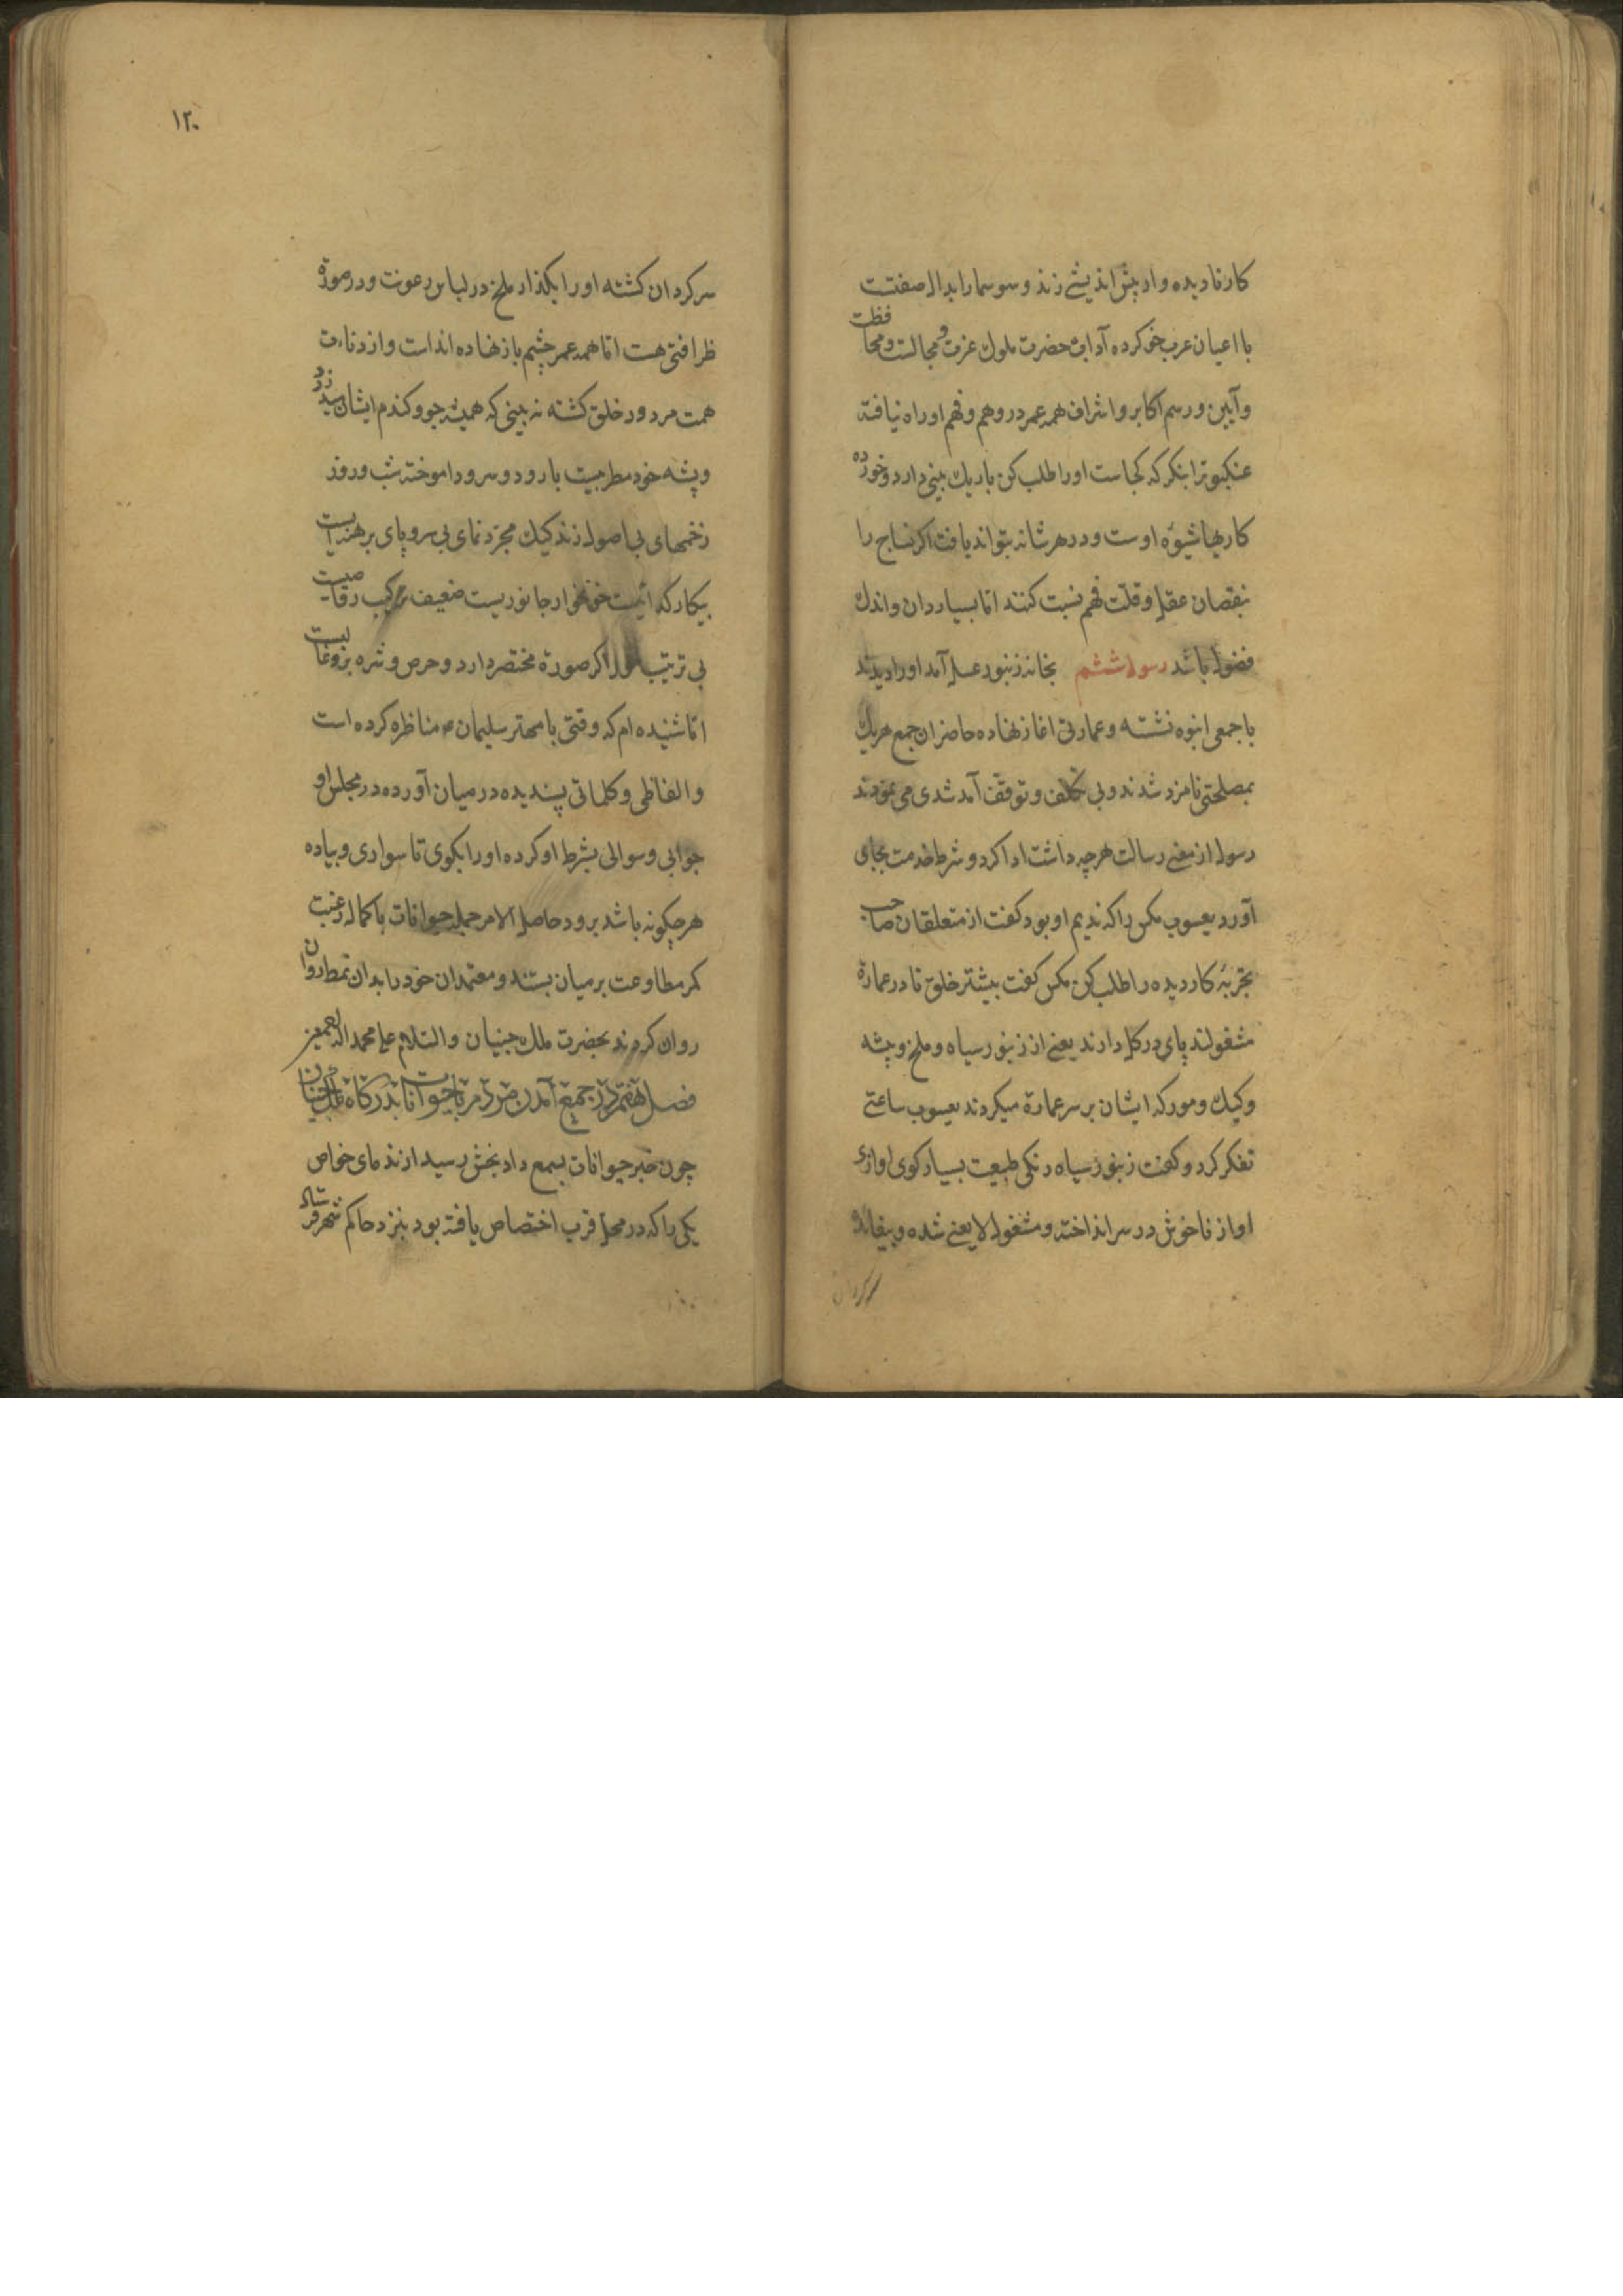 کارنادیده وار پیش اندیشی زند و سوسمار ابدال صفتست
با اعیان عرب خو کرده آداب حضرت ملوک عزت و مجالست و محافظت
و آیین و رسم اکابر و اشراف همه عمر در وهم و فهم او راه نیافته
عنکبوترا بنکر که کجاست او را طلب کن باریک بینی دارد و خورده
کاریها شیوه اوست و در هر شانه بتواند یافت اکر نساج را
بنقصان عقل و قلت فهم نسبت کنند اما بسیار دان و اندک
فضول باشد رسول ششم بخانه زنبور عسل آمد او را دیدند
با جمعی انبوه نشسته و عمارتی اغاز نهاده حاضران جمع هریک
بمصلحتی نامزد شدند و بی تکلف و توقف آمد شدی می نمودند
رسول از معنی رسالت هرچه داشت ادا کرد و شرط خدمت بجای
آورد یعسوب مکس را که ندیم او بود کفت از متعلقان صاحب
تجربه کاردیده را طلب کن مکس کفت بیشتر خلق نا در عمارة
مشغولند پای در کل دارند یعنی از زنبور سیاه و ملخ و پشه
و کیک و مور که ایشان بر سر عمارة میکردند یعسوب ساعتی
تفکر کرد و کفت زنبور سیاه زنکی طبیعت بسیار کوی اوازی
اواز ناخوش در سر انداخته و مشغول لایعنی شده و بیفایده
سرکردان
۱۲۰
سرکردان کشته او را بکذار ملخ در لباس رعونت و در صورة
ظرافتی هست اما همه عمر چشم باز نهاده انداست و از دناءت
همت مردود خلق کشته نه بینی که همیشه جو و کندم ایشان
و پشه خود مطربیست با رود و سرود اموخته شب و روز
زخمهای بی اصول زند کیک مجرد نمای بی سروپای برهنه ایست
بیکار که خونخوار جانوریست ضعیف ترکیب
بی ترتیب مور اکر صورة مختصر دارد و حرص و شره
اما شنیده ام که وقتی با مهتر سلیمان ع مناظره کرده است
و الفاظی و کلماتی پسندیده در میان آورده در مجلس او
جوابی و سوالی بشرط او کرده او را بکوی تا سواری و پیاده
هرچکونه باشد برود حاصل الامر جمله حیوانات با کمال رغبت
کمر مطاوعت بر میان بستند و معتمدان خود را بدان نمط روان
روان کردند بحضرت ملک جنیان والسلام علی محمد اله اجمعین
فصل هفتم در جمع آمدن مردم با حیوانات بدرکاه ملک جنیان
چون خبر حیوانات بسمع دادبخش رسید از ندمای خواص
یکی را که در محل قرب اختصاص یافته بود بنزد حاکم شهر